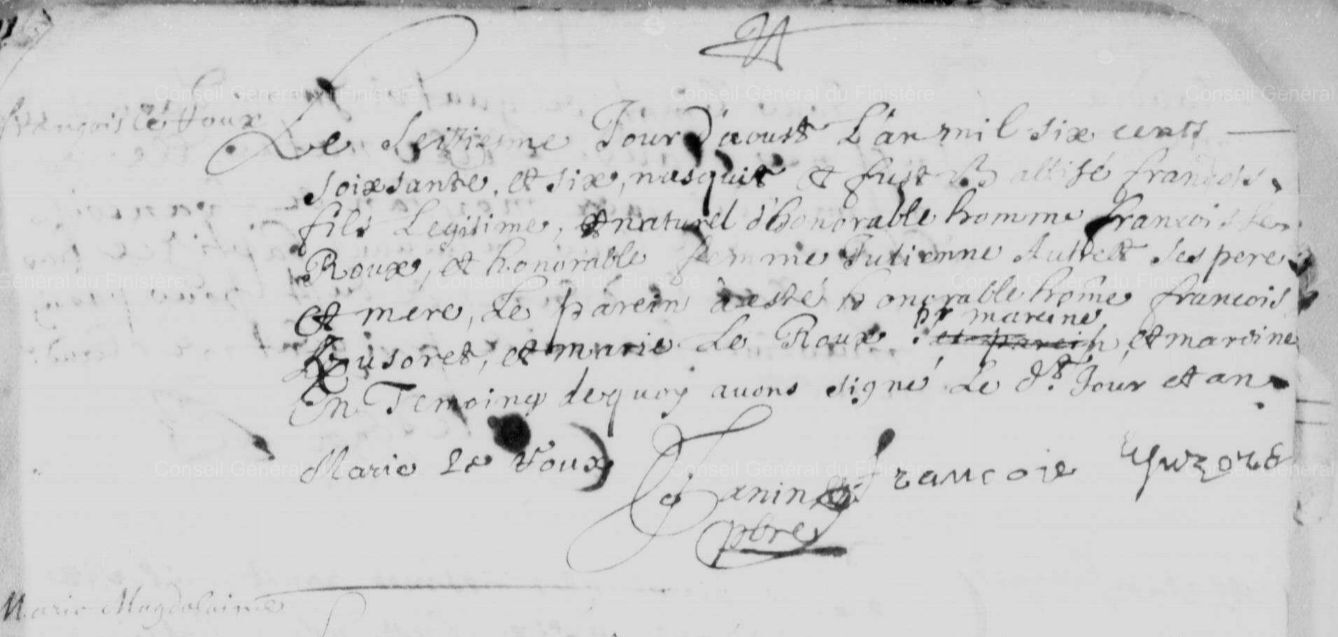 François Le Roux
Le seiziesme Jour d'aoust L'an mil six cents
soixsante, et six, nasquit et fust Batisé francois
fils Legitime, et naturel d'honorable homme francois Le
Roux, et honorable femme Julienne Autrett ses pere
et mere, Le parein a esté honorable home francois
Eusoret, et marie Le Roux pr mareine
et parein, et mareine
En Temoing dequoy avons signé Le dt Jour et an
Marie Le Roux Janin francois
pbre
Marie Magdelaine
Conseil Général du Finistère